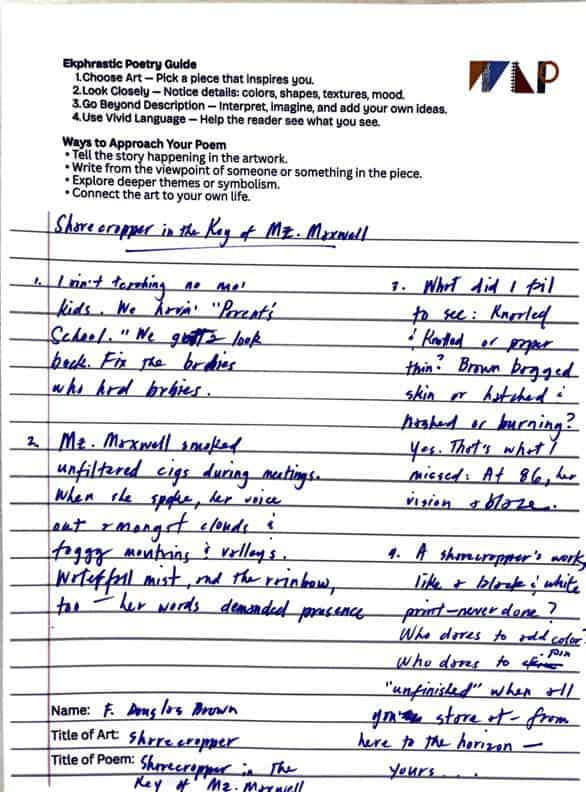 Ekphrastic Poetry Guide
1.Choose Art — Pick a piece that inspires you.
2.Look Closely — Notice details: colors, shapes, textures, mood.
3.Go Beyond Description — Interpret, imagine, and add your own ideas.
4.Use Vivid Language — Help the reader see what you see.
Ways to Approach Your Poem
• Tell the story happening in the artwork.
• Write from the viewpoint of someone or something in the piece.
• Explore deeper themes or symbolism.
• Connect the art to your own life.
Sharecropper in the Key of Mz. Maxwell
1. I ain't teaching no mo'
kids. We havin' "Parent's
School." We gotta look
back. Fix the babies
who had babies.
2. Mz. Maxwell smoked
unfiltered cigs during meetings.
When she spoke, her voice
out amongst clouds &
foggy mountains & valleys.
Waterfall mist, and the rainbow,
too — her words demanded presence
3. What did I fail
to see: Knarled
& Knotted or paper
thin? Brown bagged
skin or hatched &
hashed or burning?
Yes. That's what I
missed: At 86, her
vision ablaze.
4. A sharecropper's work,
like a black & white
print — never done?
Who dares to add color?
Who dares to join
"unfinished" when all
you stare at — from
here to the horizon —
yours . . .
Name: F. Douglas Brown
Title of Art: Sharecropper
Title of Poem: Sharecropper in The
Key of Mz. Maxwell